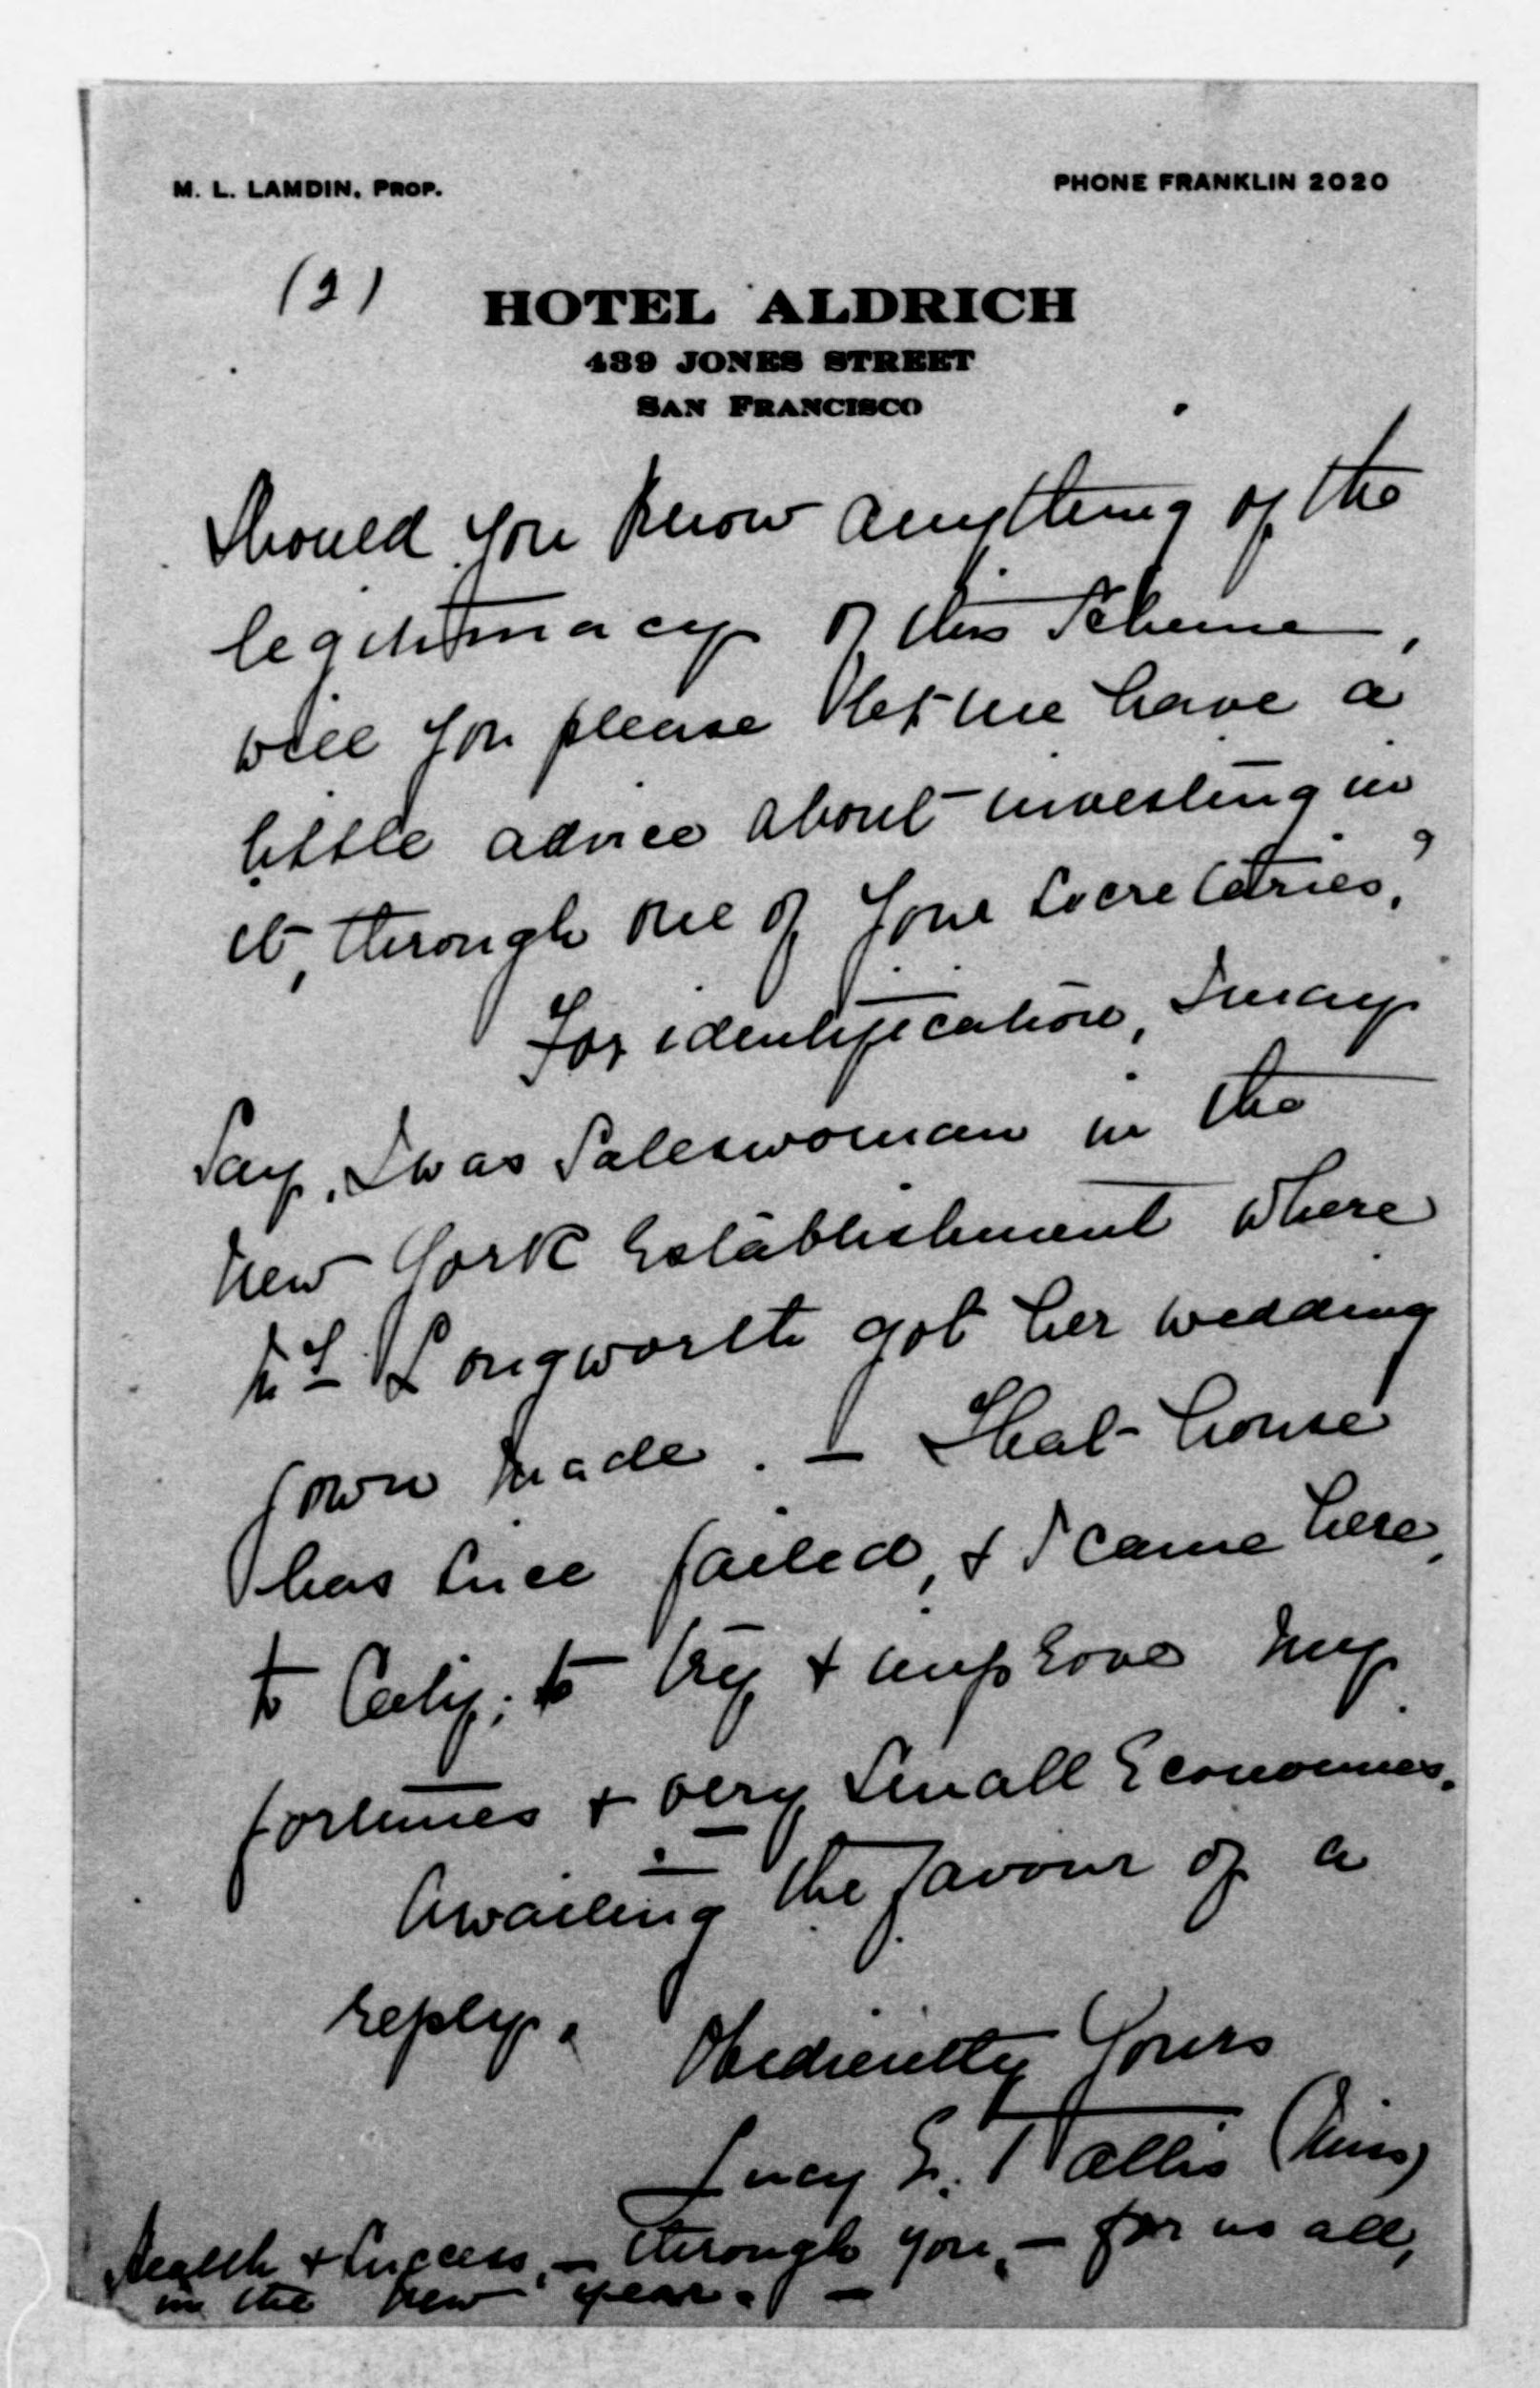 M. L. LAMDIN, PROP.
PHONE FRANKLIN 2020
(2)
HOTEL ALDRICH
439 JONES STREET
SAN FRANCISCO
Should you know anything of the
legitimacy of this Scheme,
will you please let me have a
little advice about investing in
it, through one of your Secretaries,?
For identification, I may
Say, I was Saleswoman in the
New York Establishment where
Mrs Longworth got her wedding
gown made. — That house
has since failed, & I came here,
to Calif; to try & improve my
fortunes & very small Economies.
Awaiting the favour of a
reply.
Obediently Yours
Lucy E. Tallis (Miss)
Health & Success, — through you, — for us all,
in the New year. —